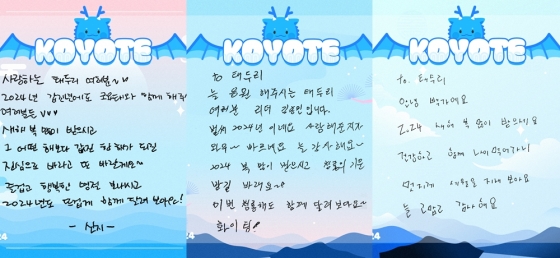 KOYOTE
사랑하는 태두리 여러분~
2024년 갑진년에도 코요태와 함께 해주
여러분들 ♥♥♥
새해 복 많이 받으시고
그 어떤 해보다 값진 한 해가 되길
진심으로 바라고 또 바랄게요~
즐겁고 행복한 명절 보내시고
2024년도 뜨겁게 함께 달려 보아요!
- 신지 -
KOYOTE
to 태두리
늘 응원 해주시는 태두리
여러분 리더 김종민입니다.
벌써 2024년 이네요 사랑해준지
와우~ 빠르네요 늘 감사해요~
2024 복, 많이 받으시고 청룡의 기운
받길 바래요~
이번 청룡해도 함께 달려보아요~
화이팅!
KOYOTE
to. 태두리
안녕 빽가예요
2024 새해 복 많이 받으시요
건강하고 함께 나이먹어가니
멋지게 세월을 지내 보아요
늘 고맙고 감사해요